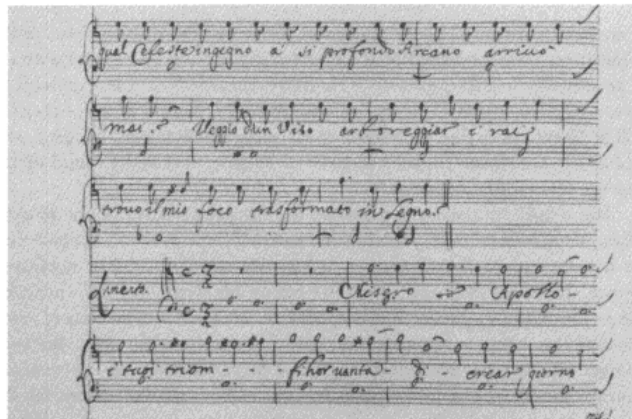 qual Celeste ingegno à si profondo Arcano arrivò
mai? Veggio d'un Viso arboreggiar i rai
trovo il mio foco trasformato in Legno.
Apollo-
e tuoi triom- - - fi hor vanta- di- crear giorno